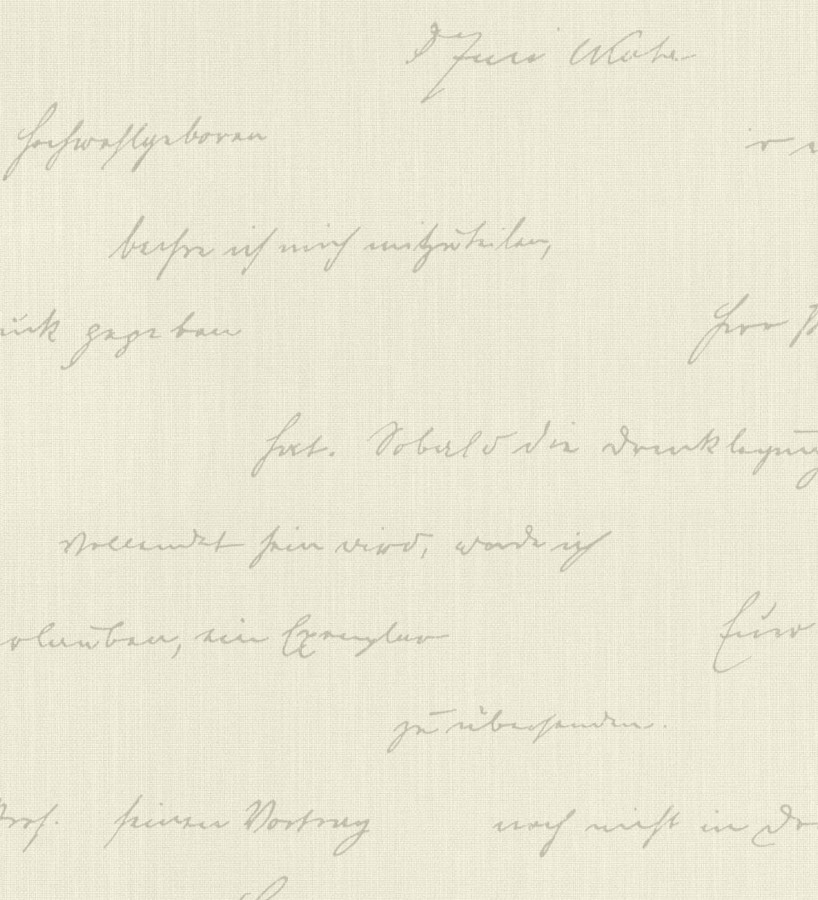 Hochwohlgeboren
beehre ich mich mitzuteilen,
gegeben Herr
hat. Sobald die Drucklegung
vollendet sein wird, werde ich
erlauben, ein Exemplar Euer
zu übersenden.
Prof. seinen Vortrag noch nicht in Dr